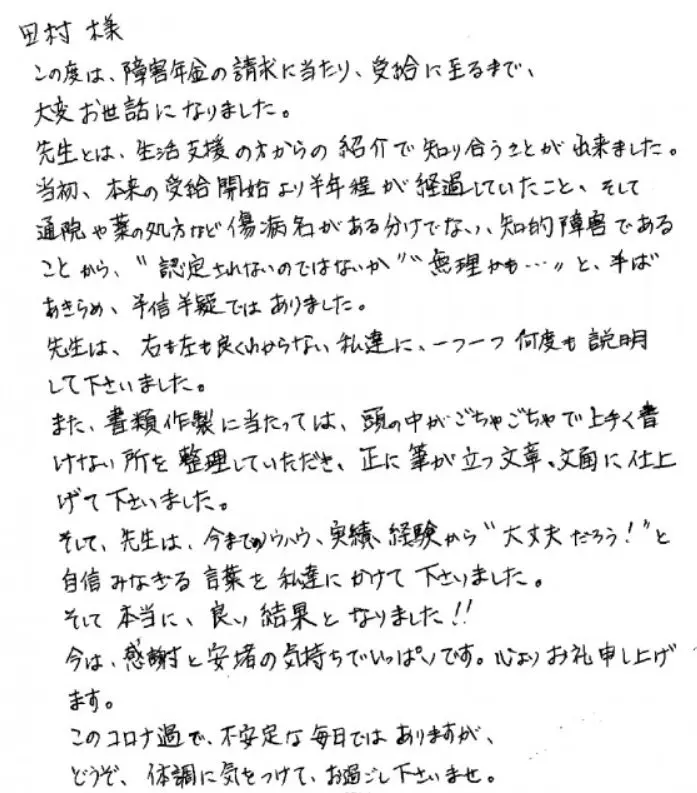 田村 様
この度は、障害年金の請求に当たり、受給に至るまで、
大変お世話になりました。
先生とは、生活支援の方からの紹介で知り合うことが出来ました。
当初、本来の受給開始より半年程が経過していたこと、そして
通院や薬の処方など傷病名がある分けでない、知的障害である
ことから、“認定されないのではないか”“無理かも…”と、半ば
あきらめ、半信半疑ではありました。
先生は、右も左も良くわからない私達に、一つ一つ何度も説明
して下さいました。
また、書類作製に当たっては、頭の中がごちゃごちゃで上手く書
けない所を整理していただき、正に筆が立つ文章、文面に仕上
げて下さいました。
そして、先生は、今までのノウハウ、実績、経験から“大丈夫だろう！”と
自信みなぎる言葉を私達にかけて下さいました。
そして本当に、良い結果となりました!!
今は、感謝と安堵の気持ちでいっぱいです。心よりお礼申し上げ
ます。
このコロナ過で、不安定な毎日ではありますが、
どうぞ、体調に気をつけて、お過ごし下さいませ。